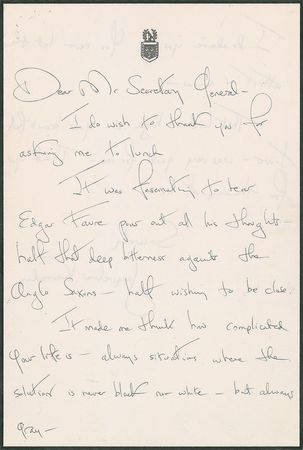 Dear Mr Secretary General—
I do wish to thank you for
asking me to lunch
It was fascinating to hear
Edgar Faure pour out all his thoughts—
half that deep bitterness against the
Anglo Saxons— half wishing to be close.
It made me think how complicated
your life is— always situations where the
solution is never black nor white— but always
gray—